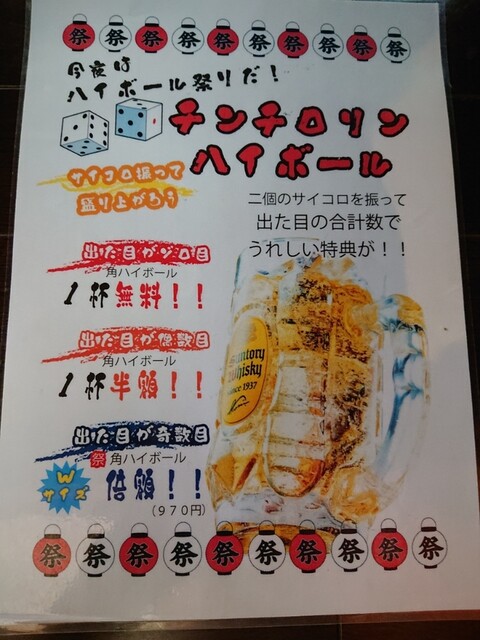 祭 祭 祭 祭 祭 祭 祭 祭 祭 祭
今夜は
ハイボール祭りだ！
チンチロリン
ハイボール
サイコロ振って
盛り上がろう
二個のサイコロを振って
出た目の合計数で
うれしい特典が！！
出た目がゾロ目
角ハイボール
1杯無料！！
出た目が偶数目
角ハイボール
1杯半額！！
出た目が奇数目
祭 角ハイボール
Wサイズ
倍額！！
（970円）
Suntory
Whisky
Since 1937
祭 祭 祭 祭 祭 祭 祭 祭 祭 祭